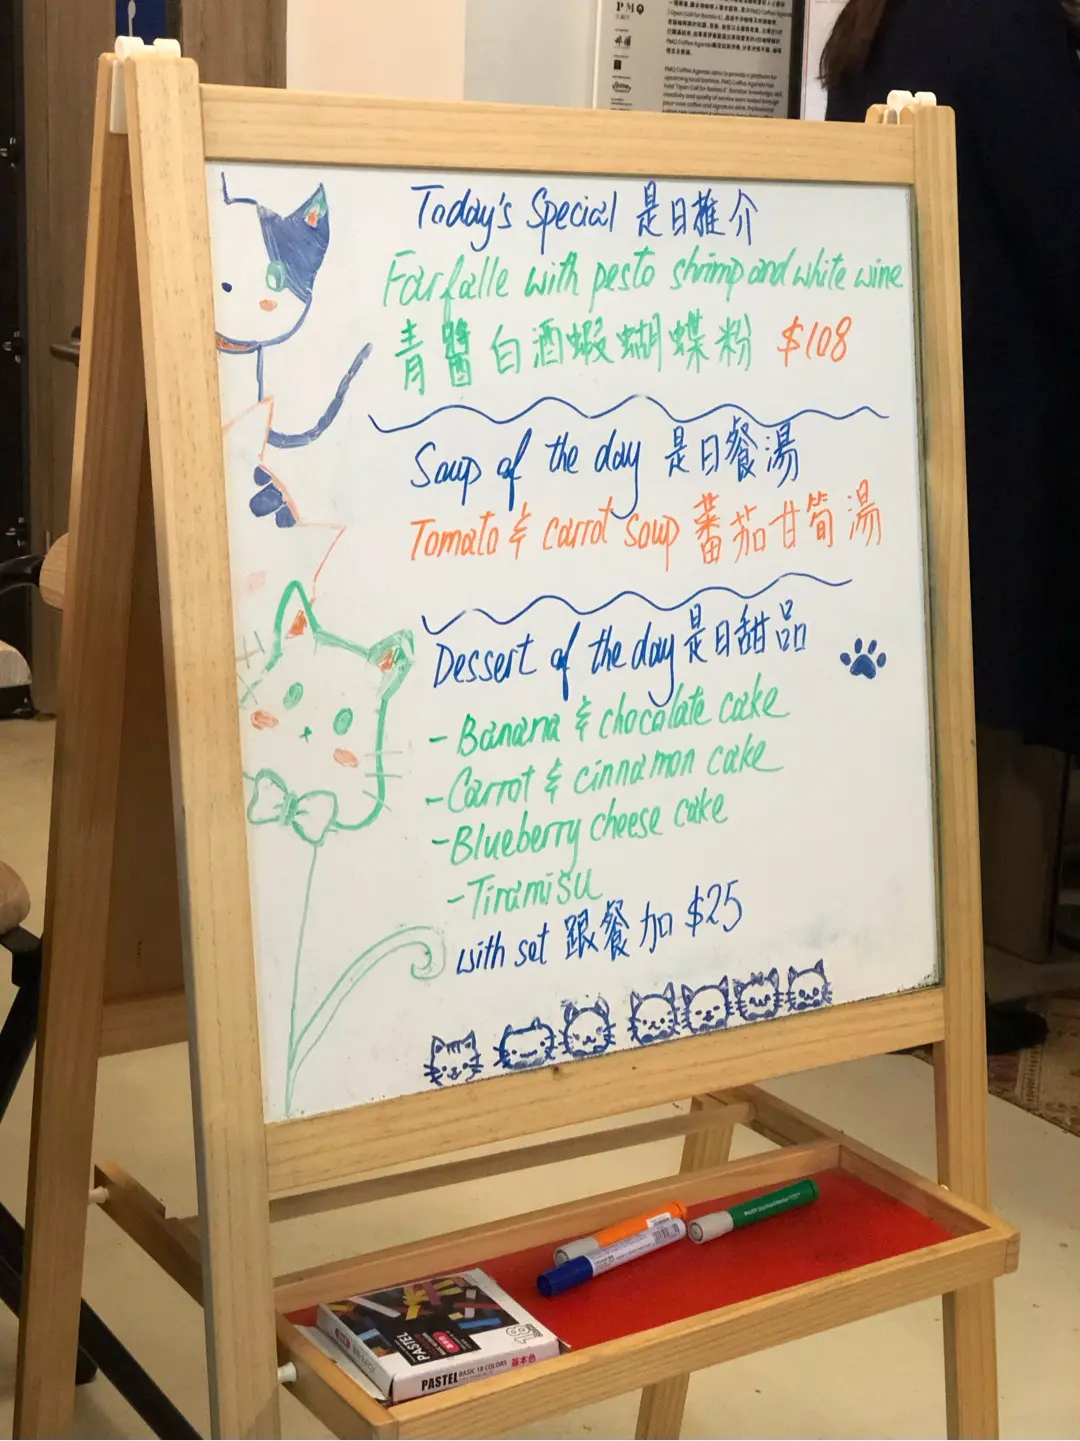 PMQ
PMQ Coffee Agenda aims to provide a platform for
upcoming local baristas. PMQ Coffee Agenda has
Today's Special 是日推介
Farfalle with pesto shrimp and white wine
青醬白酒蝦蝴蝶粉 $108
Soup of the day 是日餐湯
Tomato & carrot soup 蕃茄甘筍湯
Dessert of the day 是日甜品
- Banana & chocolate cake
- Carrot & cinnamon cake
- Blueberry cheese cake
- Tiramisu
with set 跟餐加 $25
PASTEL
PASTEL BASIC 18 COLORS 基本色